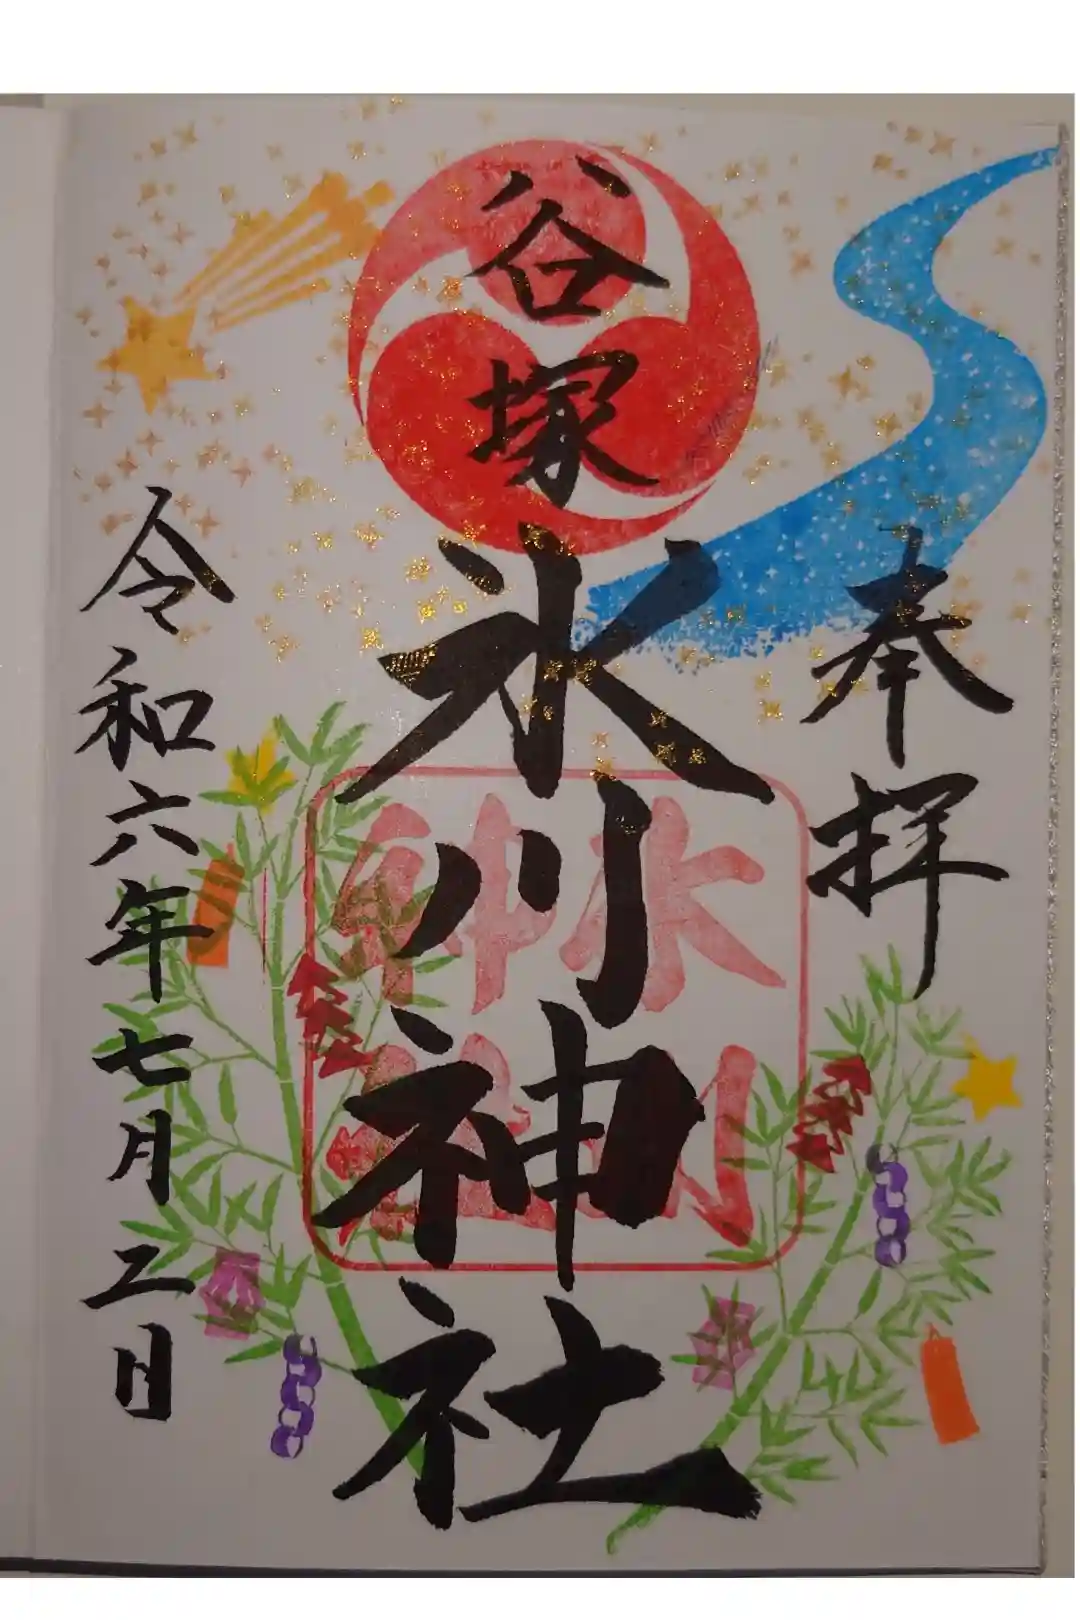 奉拝
谷塚
氷川神社
氷川
神社
令和六年七月二日